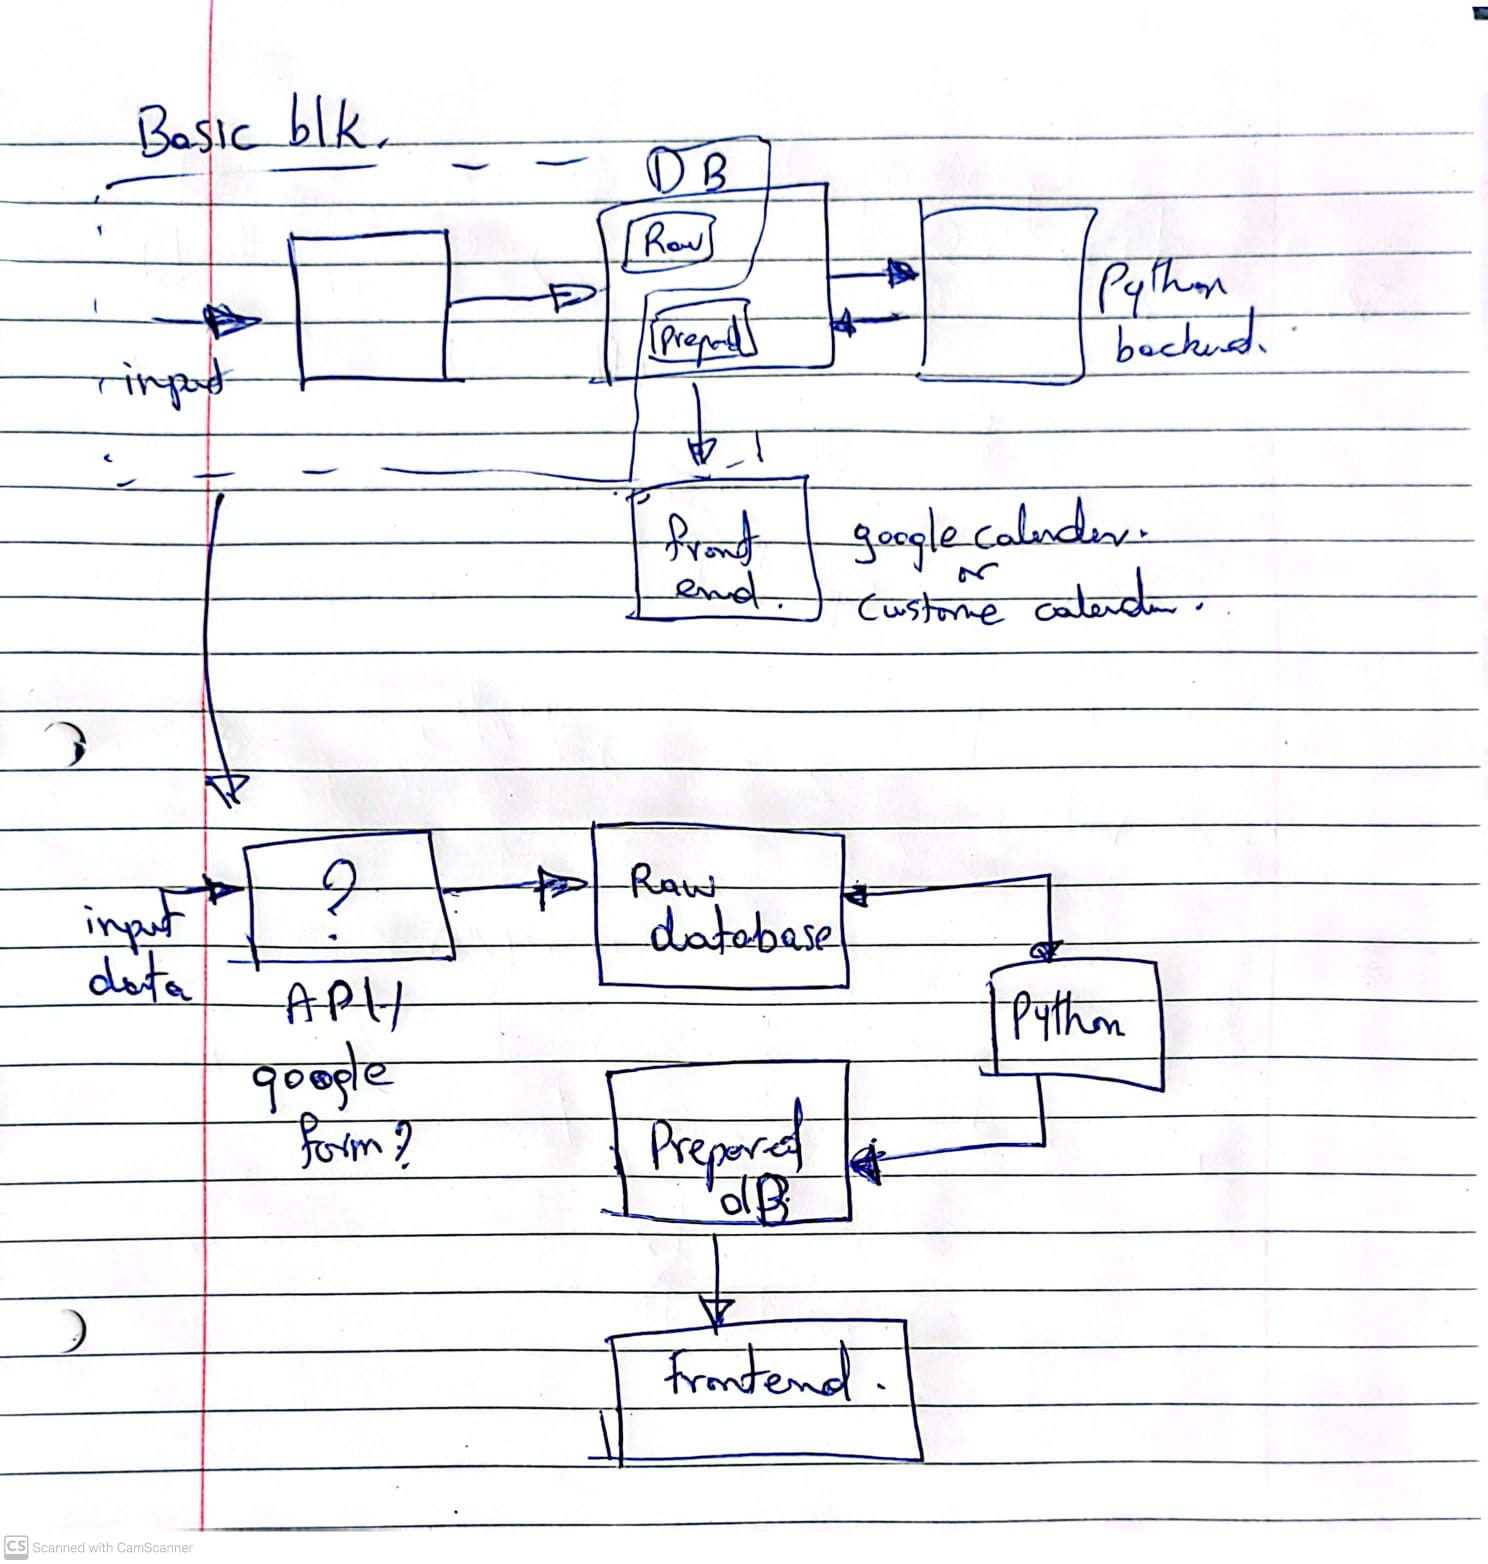 Basic blk.
DB
Raw
Prepard
input
Python
backend.
front
end.
google calender.
or
Custome calender.
?
input
data
API /
google
form?
Raw
database
Python
Prepared
dB
Frontend.
CS Scanned with CamScanner